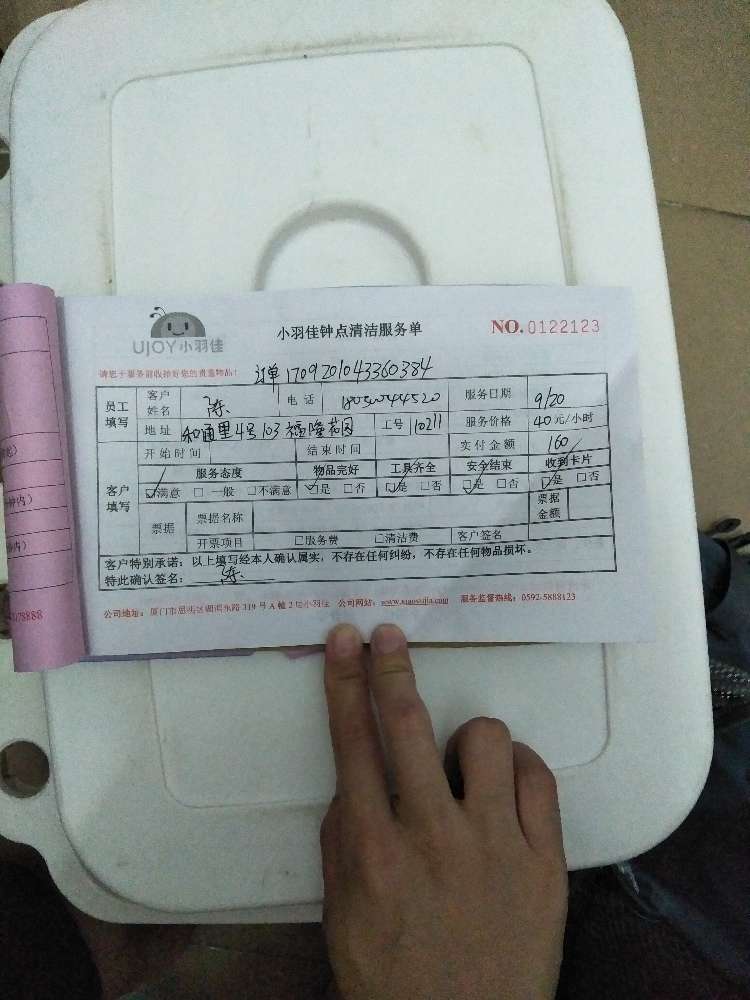 UJOY小羽佳 小羽佳钟点清洁服务单 NO.0122123
请您于服务前收拾好您的贵重物品! 订单1709201043360384
员工填写 客户姓名 陈 电话 服务日期 9/20
地址 和通里4号103福隆花园 工号 10211 服务价格 40元/小时
客户填写 开始时间 结束时间 实付金额 160
服务态度 物品完好 工具齐全 安全结束 收到卡片
☑满意 □一般 □不满意 ☑是 □否 ☑是 □否 ☑是 □否 ☑是 □否
票据 票据名称 票据金额
开票项目 □服务费 □清洁费 客户签名
客户特别承诺:以上填写经本人确认属实,不存在任何纠纷,不存在任何物品损坏。
特此确认签名: 陈
公司地址:厦门市思明区湖滨东路319号A幢2 小羽佳 公司网站: 服务监督热线:0592-5888123
78888